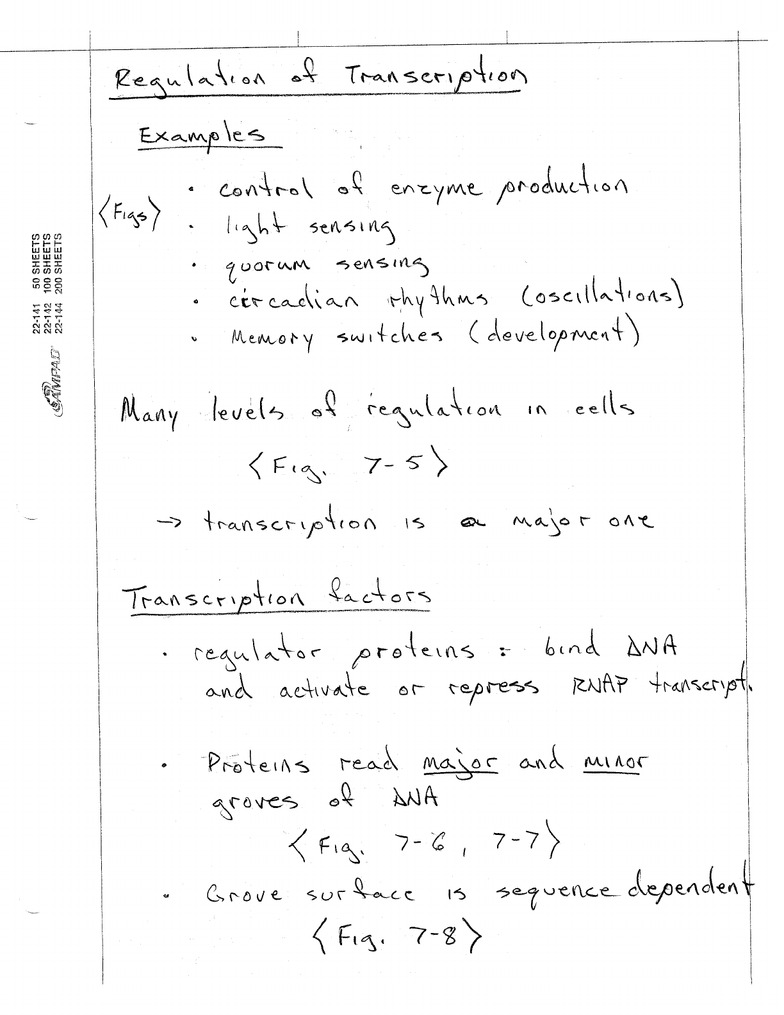 Regulation of Transcription
Examples
<Figs>
· control of enzyme production
· light sensing
· quorum sensing
· circadian rhythms (oscillations)
· Memory switches (development)
22-141 50 SHEETS
22-142 100 SHEETS
22-144 200 SHEETS
AMPAD
Many levels of regulation in cells
<Fig. 7-5>
→ transcription is a major one
Transcription factors
· regulator proteins : bind DNA
and activate or repress RNAP transcript.
· Proteins read major and minor
groves of DNA
<Fig. 7-6, 7-7>
· Grove surface is sequence dependent
<Fig. 7-8>